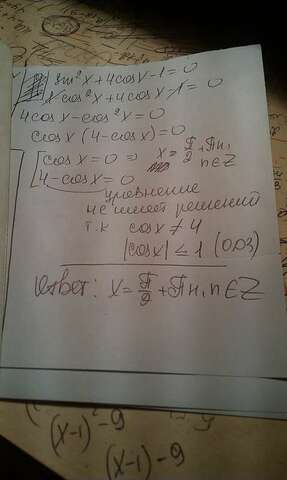 sin²x+4cosx-1=0
1-cos²x+4cosx-1=0
4cosx-cos²x=0
cosx(4-cosx)=0
[cosx=0 ⇒ x=π/2+πn, n∈Z
4-cosx=0
уравнение
не имеет решений
т.к cosx≠4
|cosx|≤1 (ОДЗ)
Ответ: x=π/2+πn, n∈Z
(x-1)²-9
(x-1)-9